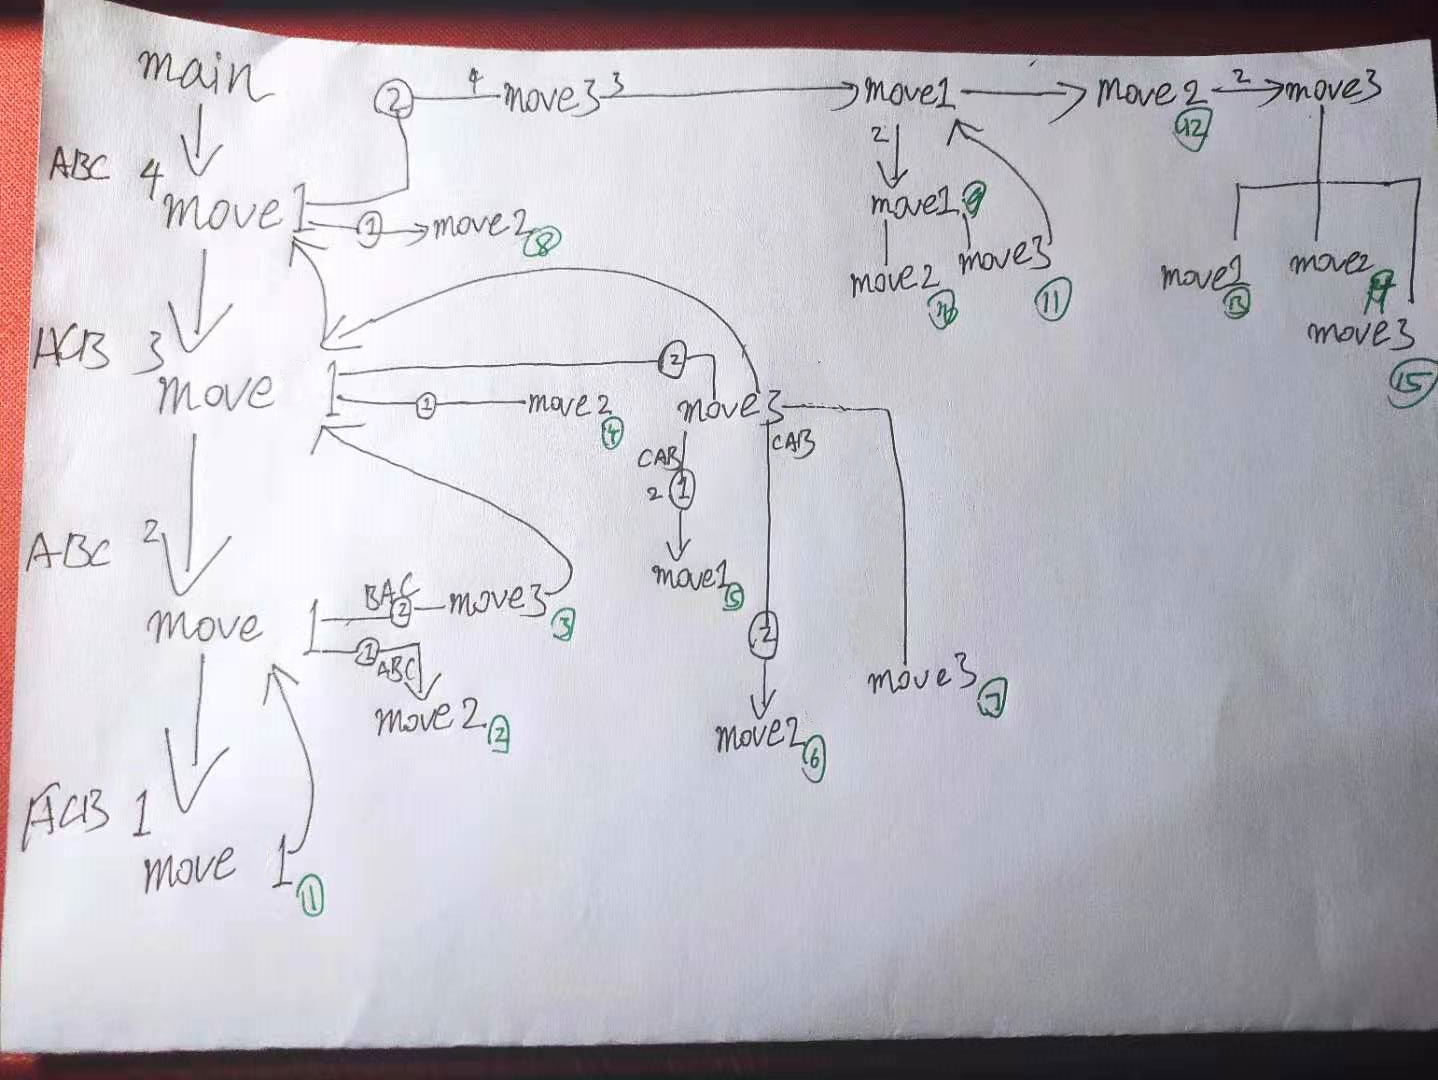 main
② 4 move3 3 move1 move2 2 move3
⑫
ABC 4 move1 ① move2 ⑧
2 move1 ⑨
move2 ⑩ move3 ⑪
move1 ⑬ move2 14
move3 ⑮
ACB 3 move 1 ②
① move2 ④ move3
CAB CAB
2 ①
move1 ⑤
ABC 2 move 1 BAC ② move3 ③
① ABC
move2 ②
② move3 ⑦
move2 ⑥
ACB 1 move 1 ⑪